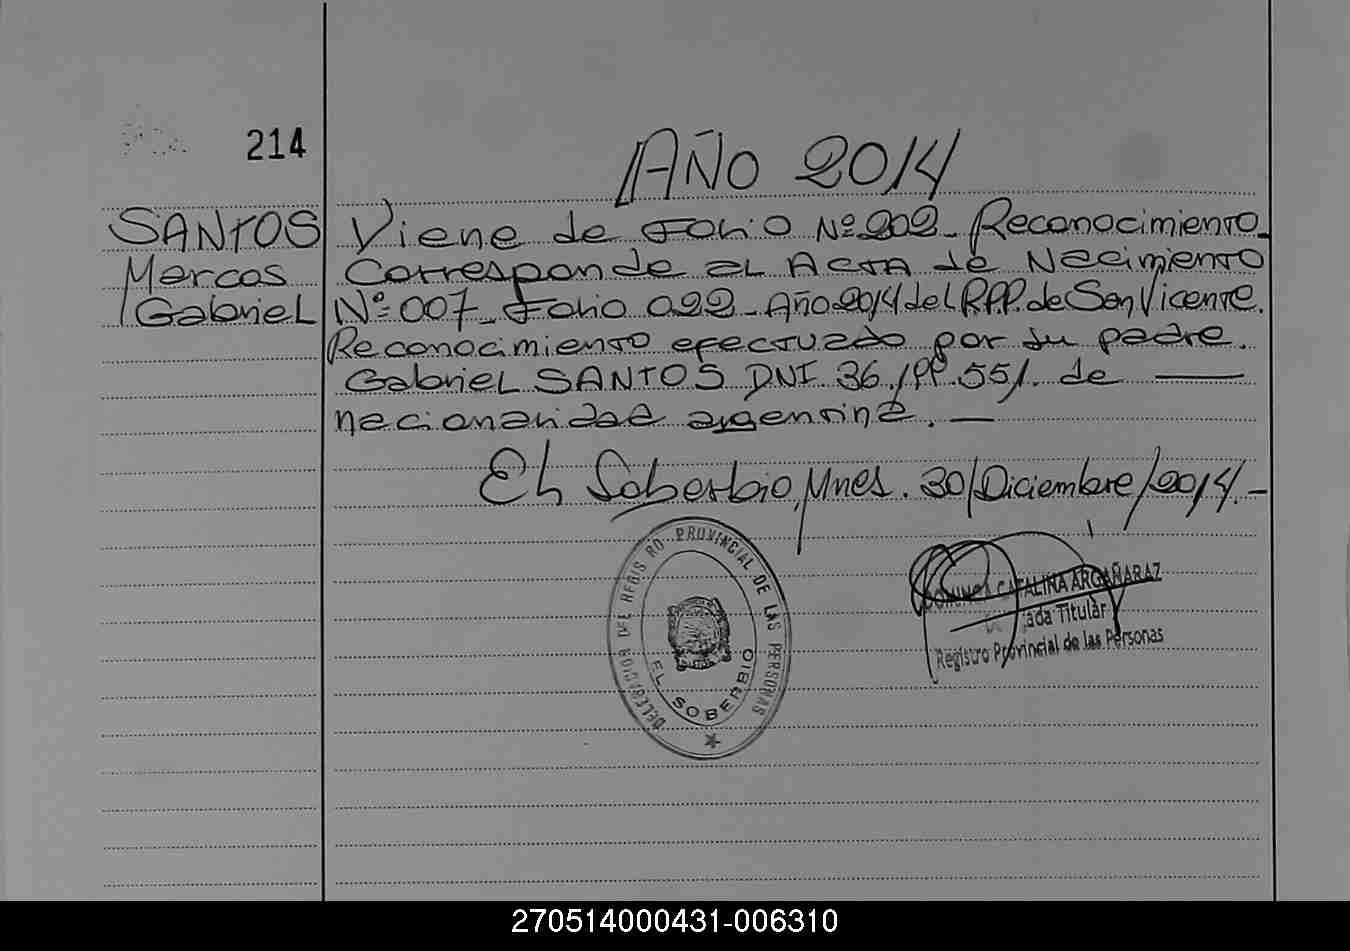 214
AÑO 2014
SANTOS
Marcos
Gabriel
Viene de Folio Nº 202_ Reconocimiento_
Corresponde al Acta de Nacimiento
Nº 007_ Folio 022_ Año 2014 del R.P.P. de San Vicente.
Reconocimiento efectuado por su padre.
Gabriel SANTOS DNI 36. . de —
nacionalidad argentina. —
El Soberbio, Mnes. 30/Diciembre/2014.-
DELEGACION DEL REGISTRO PROVINCIAL DE LAS PERSONAS
EL SOBERBIO
CATALINA ARGAÑARAZ
Titular
Registro Provincial de las Personas
270514000431-006310